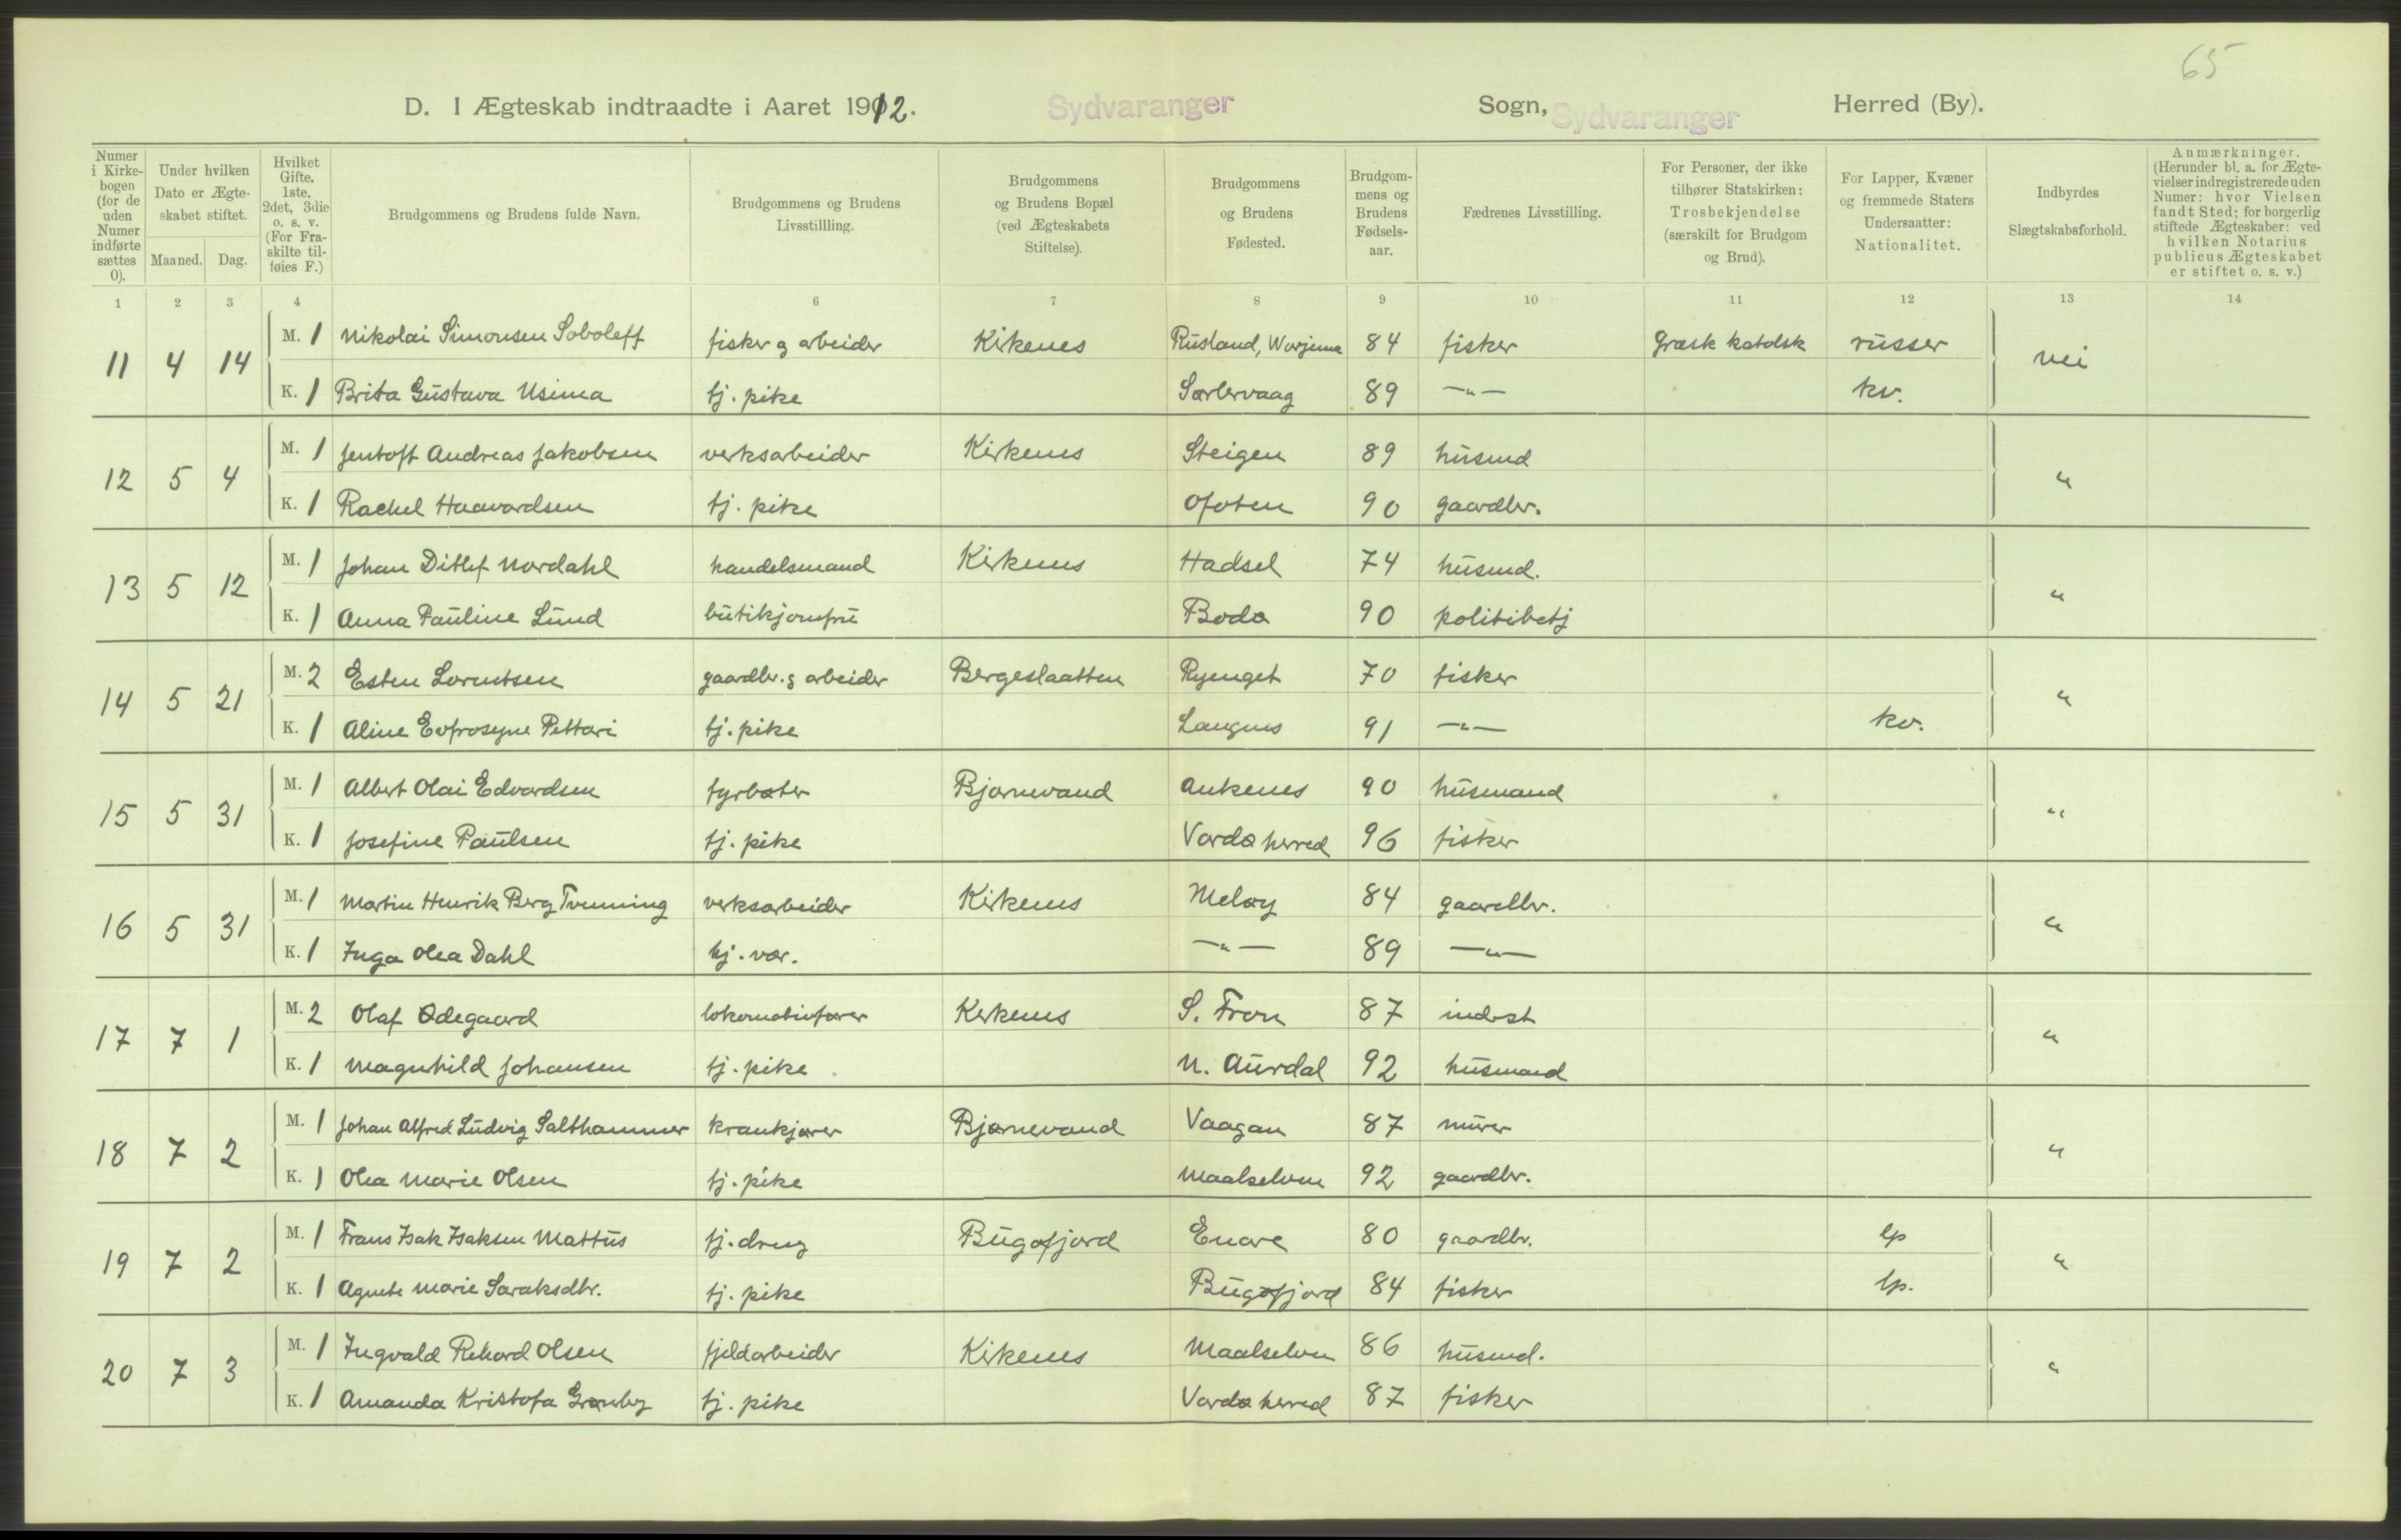 65
D. I Ægteskab indtraadte i Aaret 1912. Sydvaranger Sogn, Sydvaranger Herred (By).
Numer i Kirkebogen (for de uden Numer indførte sættes 0).
Under hvilken Dato er Ægteskabet stiftet.
Maaned. Dag.
Hvilket Gifte. 1ste, 2det, 3die o. s. v. (For Fraskilte tilføies F.)
Brudgommens og Brudens fulde Navn.
Brudgommens og Brudens Livsstillling.
Brudgommens og Brudens Bopæl (ved Ægteskabets Stiftelse).
Brudgommens og Brudens Fødested.
Brudgommens og Brudens Fødselsaar.
Fædrenes Livsstilling.
For Personer, der ikke tilhører Statskirken: Trosbekjendelse (særskilt for Brudgom og Brud).
For Lapper, Kvæner og fremmede Staters Undersaatter: Nationalitet.
Indbyrdes Slægtskabsforhold.
Anmærkninger. (Herunder bl. a. for Ægtevielser indregistrerede uden Numer: hvor Vielsen fandt Sted; for borgerlig stiftede Ægteskaber: ved hvilken Notarius publicus Ægteskabet er stiftet o. s. v.)
1 2 3 4 6 7 8 9 10 11 12 13 14
11 4 14 M. 1 Nikolai Simonsen Soboleff fisker og arbeider Kirkenes Rusland, 84 fisker Græsk katolsk russer nei
K. 1 Brita Gustava Usima tj. pike Sørlervaag 89 —"— kv.
12 5 4 M. 1 Jentoft Andreas Jakobsen verksarbeider Kirkenes Steigen 89 husmd "
K. 1 Rachel Haavardsen tj. pike Ofoten 90 gaardbr.
13 5 12 M. 1 Johan Ditlef Nordahl handelsmand Kirkenes Hadsel 74 husmd. "
K. 1 Anna Pauline Lund butikjomfru Bodø 90 politibetj
14 5 21 M. 2 Esten Lorentsen gaardbr. og arbeider Bergeslaatten Ryenget 70 fisker "
K. 1 Aline Eufrosyne Pettari tj. pike Langnes 91 —"— kv.
15 5 31 M. 1 Albert Olai Edvardsen fyrbøter Bjørnevand Ankenes 90 husmand "
K. 1 Josefine Paulsen tj. pike Vardø herred 96 fisker
16 5 31 M. 1 Martin Henrik Berg Tvenning verksarbeider Kirkenes Meløy 84 gaardbr. "
K. 1 Inga Olea Dahl hj. vær. —"— 89 —"—
17 7 1 M. 2 Olaf Ødegaard lokomotivfører Kirkenes S. Fron 87 inderst "
K. 1 Magnhild Johansen tj. pike N. Aurdal 92 husmand
18 7 2 M. 1 Johan Alfred Ludvig Salthammer krankjører Bjørnevand Vaagan 87 murer "
K. 1 Olea Marie Olsen tj. pike Maalselven 92 gaardbr.
19 7 2 M. 1 Frans Isak Isaksen Mattus tj. dreng Bugøfjord Enare 80 gaardbr. lp "
K. 1 Agnete Marie Saraksdtr. tj. pike Bugøfjord 84 fisker lp.
20 7 3 M. 1 Ingvald Rikard Olsen fjeldarbeider Kirkenes Maalselven 86 husmd. "
K. 1 Amanda Kristofa Grønby tj. pike Vardø herred 87 fisker